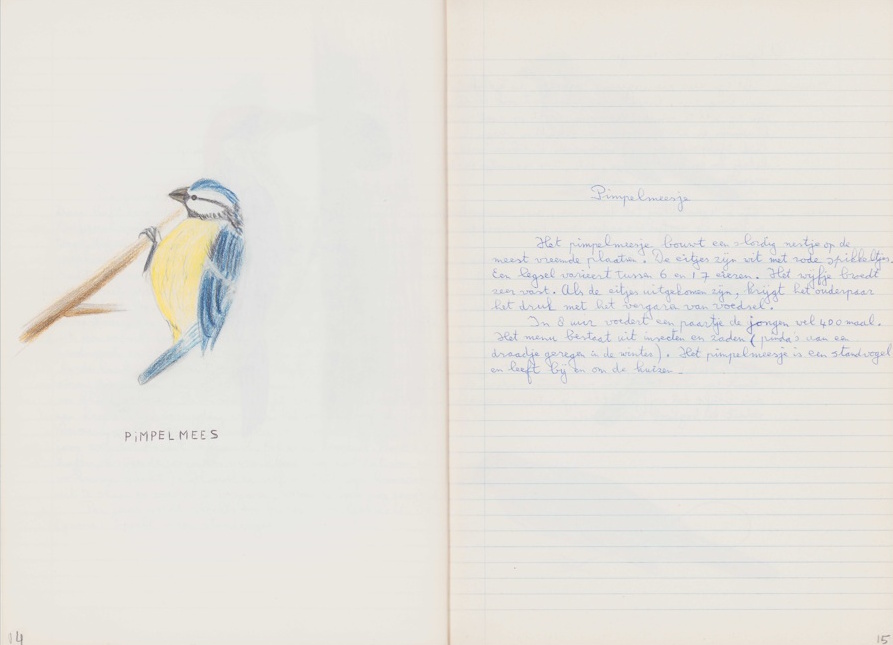 PiMPELMEES
14
Pimpelmeesje
Het pimpelmeesje bouwt een slordig nestje op de
meest vreemde plaatsen. De eitjes zijn wit met rode spikkeltjes.
Een legsel varieert tussen 6 en 17 eieren. Het wijfje broedt
zeer vast. Als de eitjes uitgekomen zijn, krijgt het ouderpaar
het druk met het vergaren van voedsel.
In 8 uur voedert een paartje de jongen wel 400 maal.
Het menu bestaat uit insecten en zaden (pinda's aan een
draadje geregen in de winter). Het pimpelmeesje is een standvogel
en leeft bij en om de huizen.
15